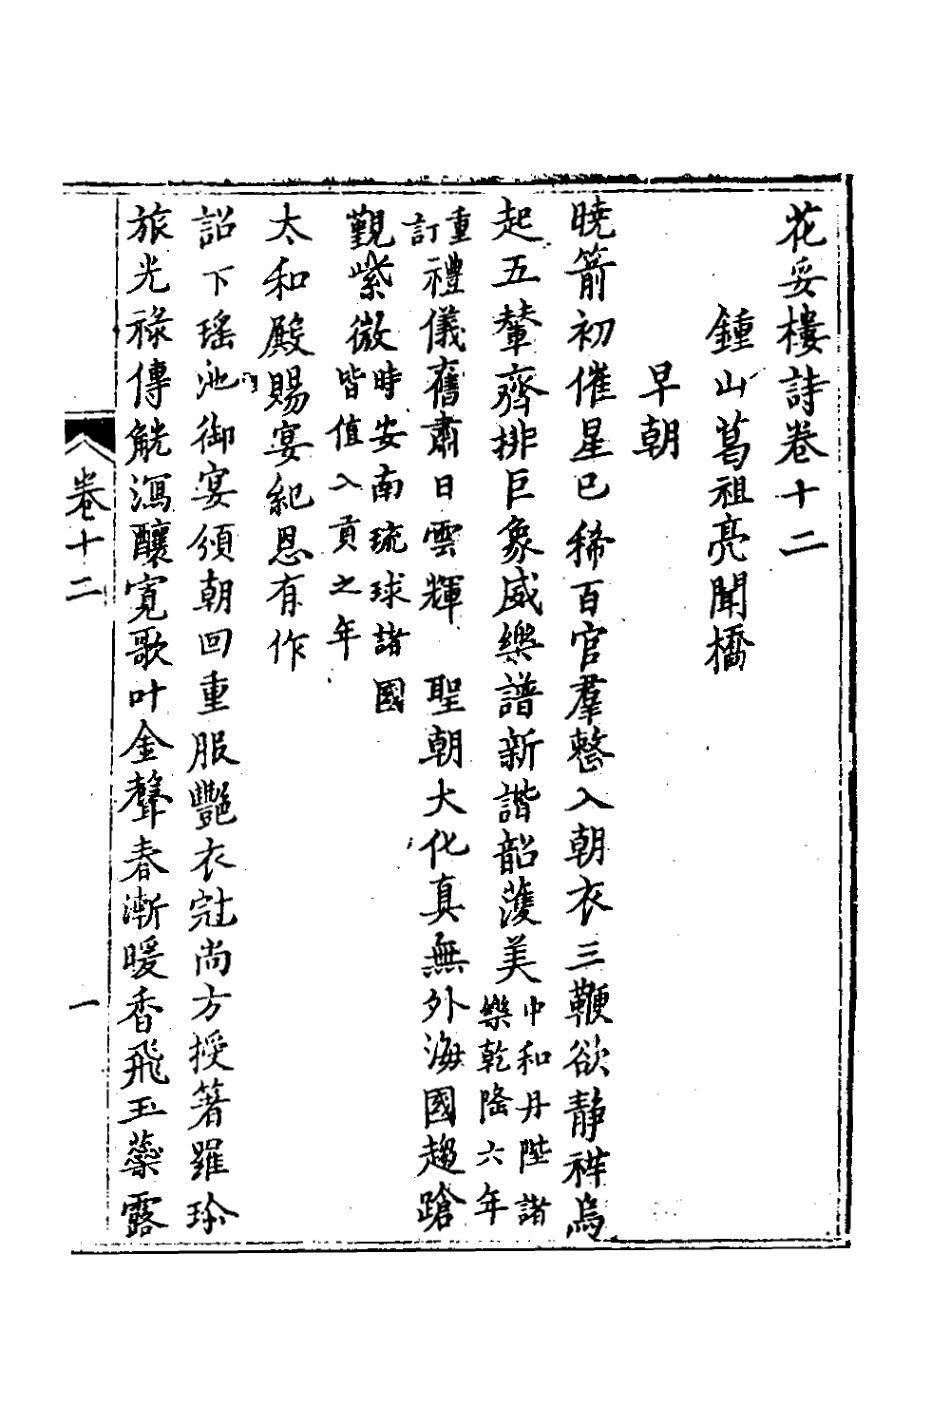 花妥樓詩卷十二
鍾山葛祖亮聞橋
早朝
曉箭初催星已稀百官羣整入朝衣三鞭欲静祥烏
起五輦齊排巨象威樂譜新諧韶濩美中和丹陛諸樂乾隆六年
重訂禮儀舊肅日雲輝 聖朝大化真無外海國趨蹌
觀紫微時安南琉球諸國皆值入貢之年
太和殿賜宴紀恩有作
詔下瑤池御宴頒朝回重服艷衣冠尚方授箸羅珍
旅光祿傳觥瀉釀寬歌叶金聲春漸暖香飛玉蘂露
卷十二
一